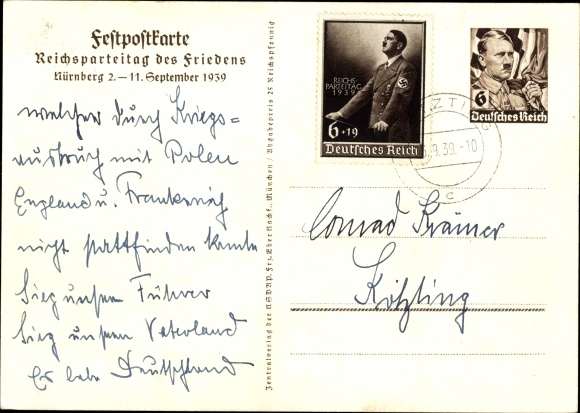 Festpostkarte
Reichsparteitag des Friedens
Nürnberg 2.—11. September 1939
welcher durch Kriegs=
ausbruch mit Polen
England u. Frankreich
nicht stattfinden konnte
Sieg unserm Führer
Sieg unserm Vaterland
Es lebe Deutschland
Zentralverlag der NSDAP. Frz. Eher Nachf., München / Abgabepreis 25 Reichspfennig
REICHS-
PARTEITAG
1939
6+19
Deutsches Reich
6
Deutsches Reich
.9.39.-10
c
Conrad Krämer
Kötzting